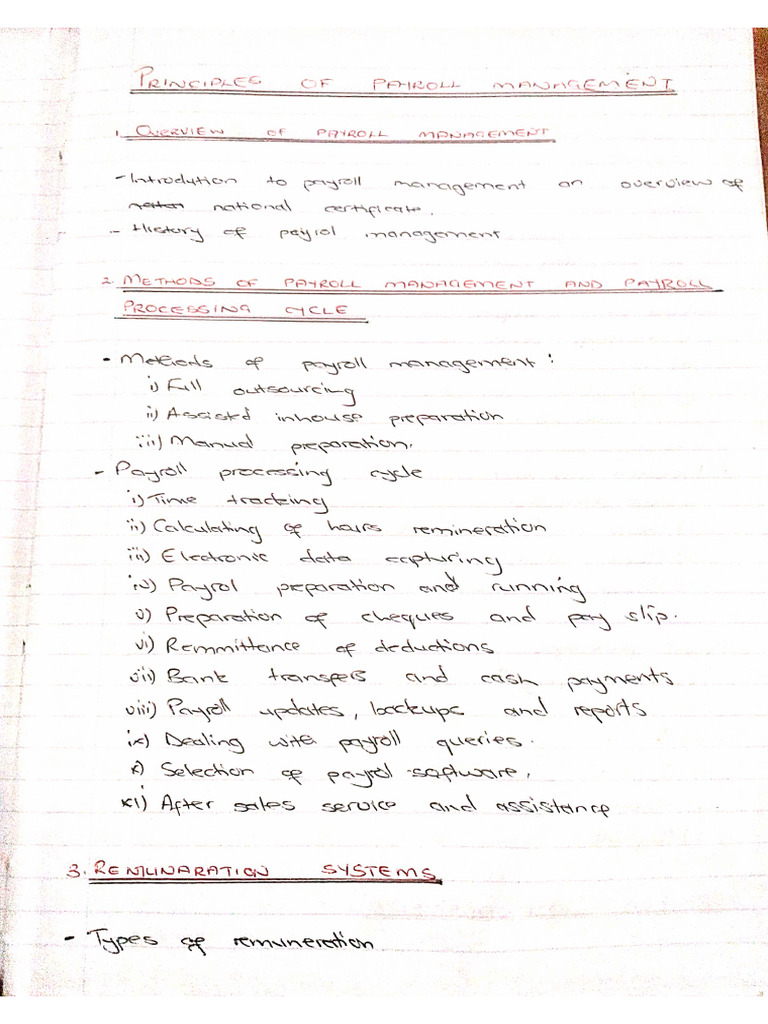 PRINCIPLES OF PAYROLL MANAGEMENT
1. OVERVIEW OF PAYROLL MANAGEMENT
- Introdution to payroll management an overview of
national certificate.
- History of payrol management
2. METHODS OF PAYROLL MANAGEMENT AND PAYROLL
PROCESSING CYCLE
- Methods of payroll management :
i) Full outsourcing
ii) Assisted inhouse preparation
iii) Manual preparation.
- Payroll processing cycle
i) Time tracking
ii) Calculating of hours remineration
iii) Electronic data capturing
iv) Payrol preparation and running
v) Preparation of cheques and pay slip.
vi) Remmittance of deductions
vii) Bank transfers and cash payments
viii) Payroll updates, backups and reports
ix) Dealing with payroll queries.
x) Selection of payrol software.
xi) After sales service and assistance
3. REMUNARATION SYSTEMS
- Types of remuneration